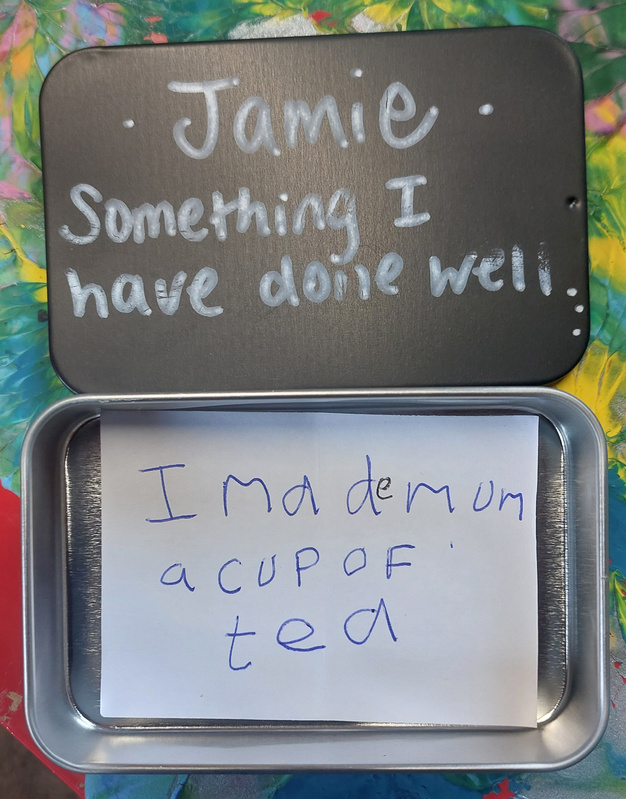 Jamie
Something I
have done well...
I made mum
a CUP OF
tea